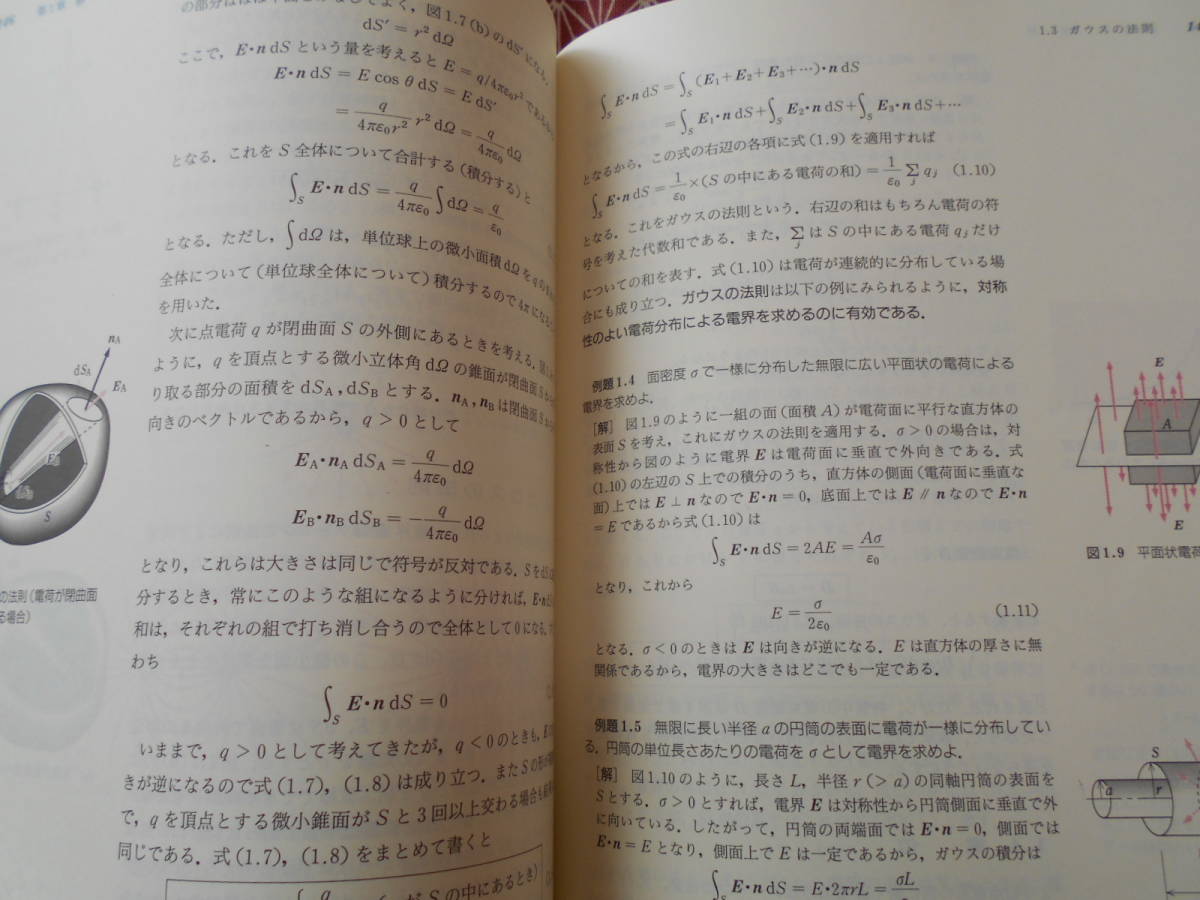 の部分はほぼ平面とみなしてよく，図1.7(b)のdS′になる．
dS′ = r² dΩ
ここで，E·n dS という量を考えると E = q/4πε₀r² である
E·n dS = E cos θ dS = E dS′
= q/4πε₀r² r² dΩ = q/4πε₀ dΩ
となる．これを S 全体について合計する(積分する)と
∫S E·n dS = q/4πε₀ ∫dΩ = q/ε₀
となる．ただし，∫dΩ は，単位球上の微小面積 dΩ を q の
全体について(単位球全体について)積分するので 4π になる
を用いた．
次に点電荷 q が閉曲面 S の外側にあるときを考える．
ように，q を頂点とする微小立体角 dΩ の錐面が閉曲面 S
り取る部分の面積を dSA, dSB とする．nA, nB は閉曲面 S
向きのベクトルであるから，q > 0 として
EA·nA dSA = q/4πε₀ dΩ
EB·nB dSB = − q/4πε₀ dΩ
となり，これらは大きさは同じで符号が反対である．S を
分するとき，常にこのような組になるように分ければ，E·n
和は，それぞれの組で打ち消し合うので全体として 0 になる．
わち
∫S E·n dS = 0
いままで，q > 0 として考えてきたが，q < 0 のときも，
きが逆になるので式(1.7)，(1.8)は成り立つ．また S の形が
で，q を頂点とする微小錐面が S と 3 回以上交わる場合も
同じである．式(1.7)，(1.8)をまとめて書くと
q
S の中にあるとき)
nA
dSA
EA
S
の法則(電荷が閉曲面
る場合)
1.3 ガウスの法則
∫S E·n dS = ∫S (E₁+E₂+E₃+⋯)·n dS
= ∫S E₁·n dS + ∫S E₂·n dS + ∫S E₃·n dS + ⋯
となるから，この式の右辺の各項に式(1.9)を適用すれば
∫S E·n dS = 1/ε₀ ×(S の中にある電荷の和) = 1/ε₀ Σj qj (1.10)
となる．これをガウスの法則という．右辺の和はもちろん電荷の符
号を考えた代数和である．また，Σj は S の中にある電荷 qj だけ
についての和を表す．式(1.10)は電荷が連続的に分布している場
合にも成り立つ．ガウスの法則は以下の例にみられるように，対称
性のよい電荷分布による電界を求めるのに有効である．
例題1.4 面密度 σ で一様に分布した無限に広い平面状の電荷による
電界を求めよ．
[解] 図1.9のように一組の面(面積 A)が電荷面に平行な直方体の
表面 S を考え，これにガウスの法則を適用する．σ>0 の場合は，対
称性から図のように電界 E は電荷面に垂直で外向きである．式
(1.10)の左辺の S 上での積分のうち，直方体の側面(電荷面に垂直な
面)上では E ⊥ n なので E·n = 0，底面上では E ∥ n なので E·n
= E であるから式(1.10)は
∫S E·n dS = 2AE = Aσ/ε₀
となり，これから
E = σ/2ε₀ (1.11)
となる．σ<0 のときは E は向きが逆になる．E は直方体の厚さに無
関係であるから，電界の大きさはどこでも一定である．
例題1.5 無限に長い半径 a の円筒の表面に電荷が一様に分布してい
る．円筒の単位長さあたりの電荷を σ として電界を求めよ．
[解] 図1.10のように，長さ L，半径 r(> a)の同軸円筒の表面を
S とする．σ>0 とすれば，電界 E は対称性から円筒側面に垂直で外
に向いている．したがって，円筒の両端面では E·n = 0，側面では
E·n = E となり，側面上で E は一定であるから，ガウスの積分は
∫S E·n dS = E·2πrL = σL
E
A
E
図1.9 平面状電荷
S
a
r